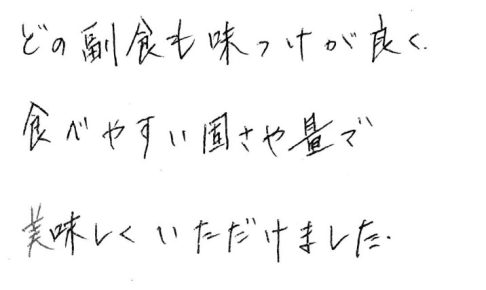 どの副食も味つけが良く、
食べやすい固さや量で
美味しくいただけました。